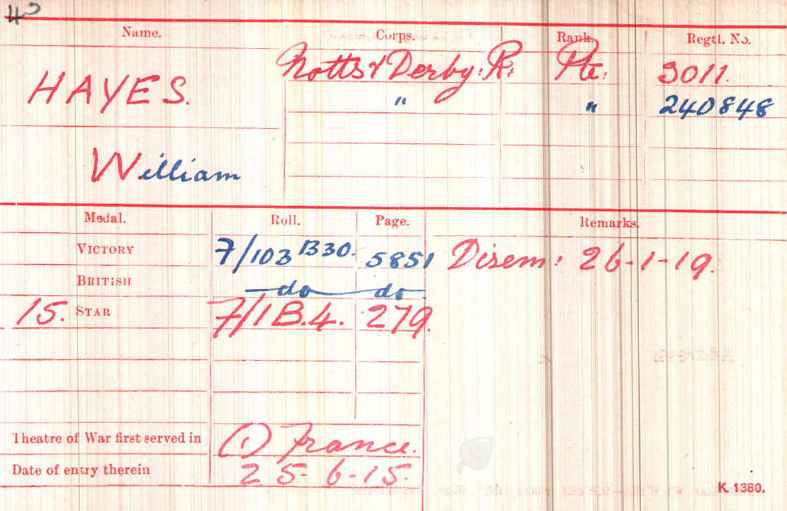 Name. Corps. Rank. Regtl. No.
HAYES. Notts & Derby: R: Pte. 3011.
" " 240848
William
Medal. Roll. Page. Remarks.
VICTORY 7/103 B30. 5851 Disem: 26-1-19.
BRITISH do do
15. STAR 7/1 B.4. 279.
Theatre of War first served in (1) France.
Date of entry therein 25-6-15.
K. 1380.